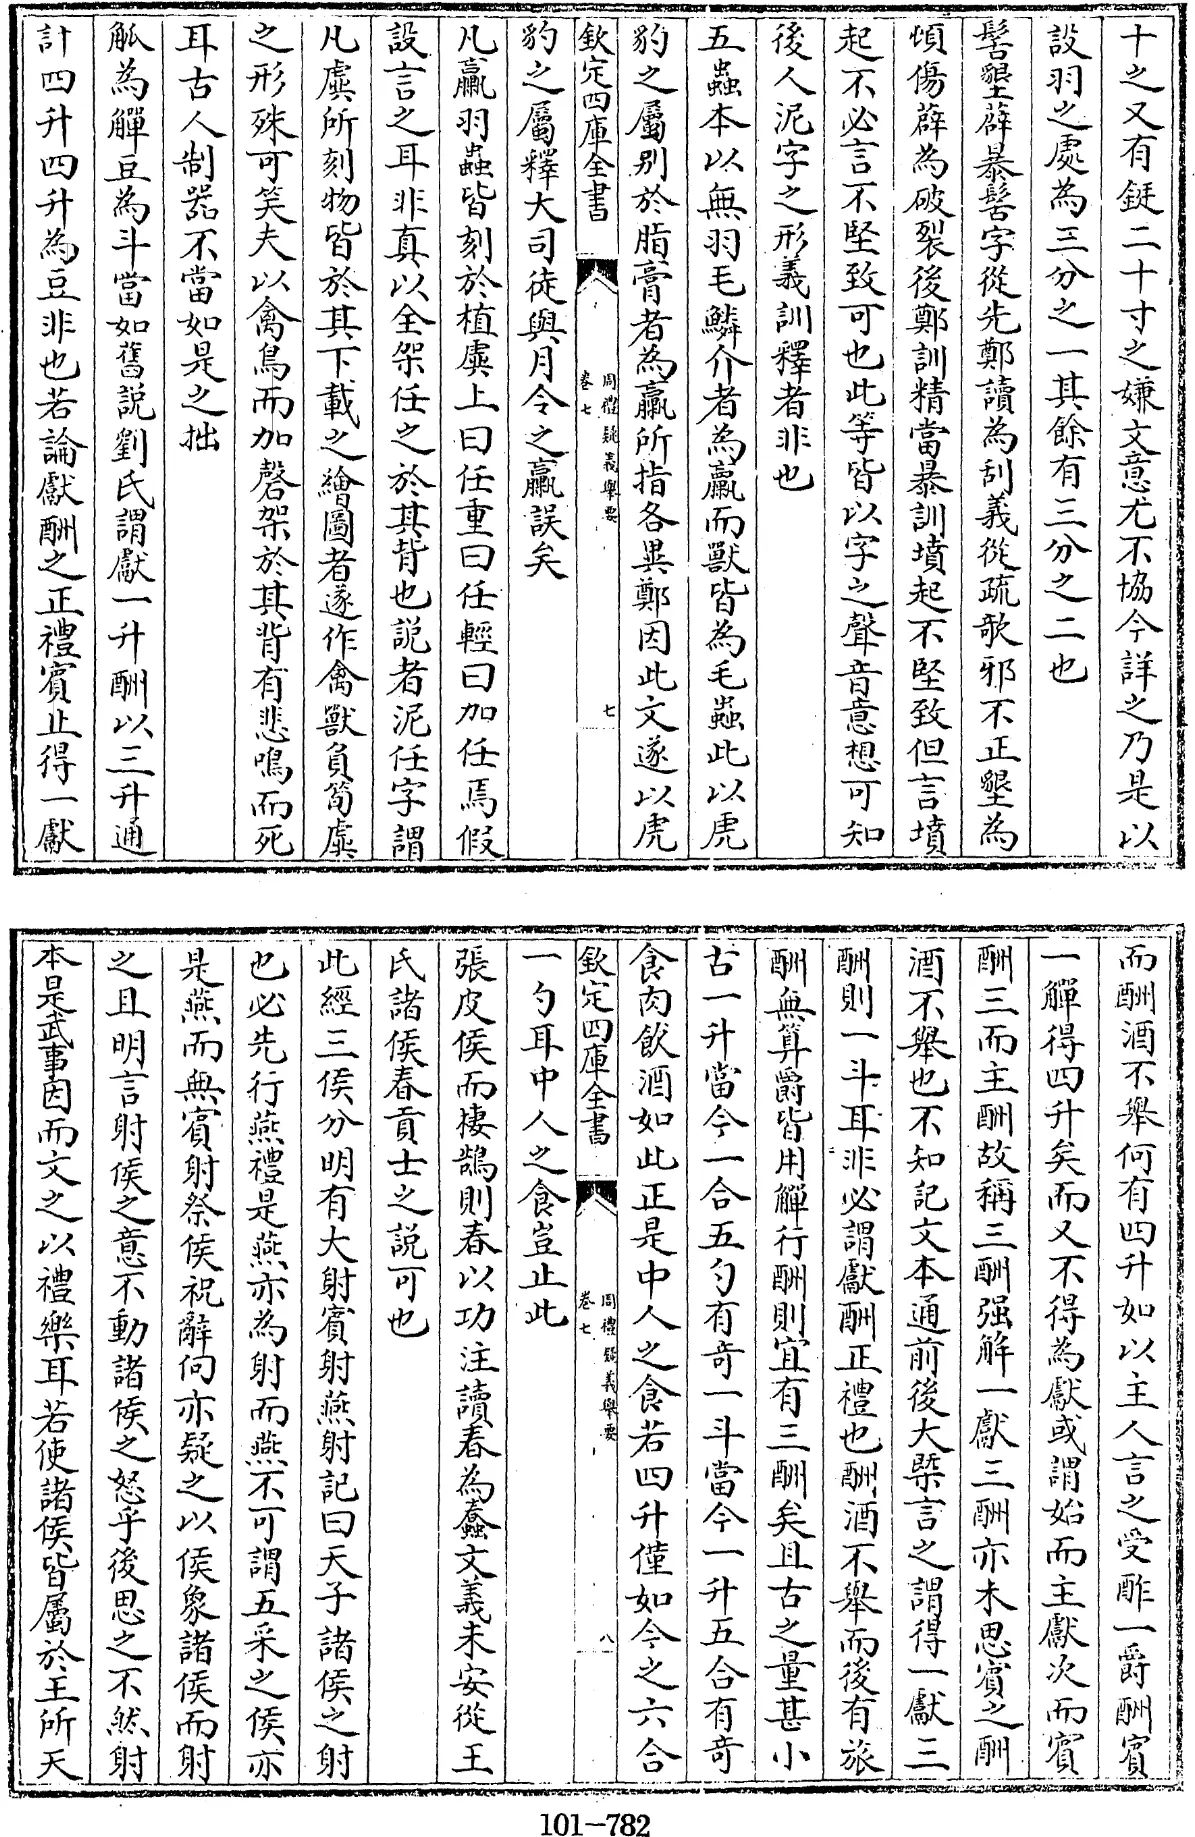 十之又有鋌二十寸之嫌文意尤不協今詳之乃是以
設羽之處為三分之一其餘有三分之二也
髻墾薜暴髻字從先鄭讀為刮義從疏歌邪不正墾為
頓傷薜為破裂後鄭訓精當暴訓墳起不堅致但言墳
起不必言不堅致可也此等皆以字之聲音意想可知
後人泥字之形義訓釋者非也
五蟲本以無羽毛鱗介者為臝而獸皆為毛蟲此以虎
豹之屬别於脂膏者為臝所指各異鄭因此文遂以虎
欽定四庫全書
周禮疑義舉要
卷七
七
豹之屬釋大司徒與月令之臝誤矣
凡臝羽蟲皆刻於植虡上曰任重曰任輕曰加任焉假
設言之耳非真以全架任之於其背也説者泥任字謂
凡虡所刻物皆於其下載之繪圖者遂作禽獸負筍虡
之形殊可笑夫以禽鳥而加磬架於其背有悲鳴而死
耳古人制器不當如是之拙
觚為觶豆為斗當如舊説劉氏謂獻一升酬以三升通
計四升四升為豆非也若論獻酬之正禮賓止得一獻
而酬酒不舉何有四升如以主人言之受酢一爵酬賓
一觶得四升矣而又不得為獻或謂始而主獻次而賓
酬三而主酬故稱三酬强解一獻三酬亦未思賓之酬
酒不舉也不知記文本通前後大槩言之謂得一獻三
酬則一斗耳非必謂獻酬正禮也酬酒不舉而後有旅
酬無算爵皆用觶行酬則宜有三酬矣且古之量甚小
古一升當今一合五勺有奇一斗當今一升五合有奇
食肉飲酒如此正是中人之食若四升僅如今之六合
欽定四庫全書
周禮疑義舉要
卷七
八
一勺耳中人之食豈止此
張皮侯而棲鵠則春以功注讀春為蠢文義未安從王
氏諸侯春貢士之説可也
此經三侯分明有大射賓射燕射記曰天子諸侯之射
也必先行燕禮是燕亦為射而燕不可謂五采之侯亦
是燕而無賓射祭侯祝辭向亦疑之以侯象諸侯而射
之且明言射侯之意不動諸侯之怒乎後思之不然射
本是武事因而文之以禮樂耳若使諸侯皆屬於王所天
101-782